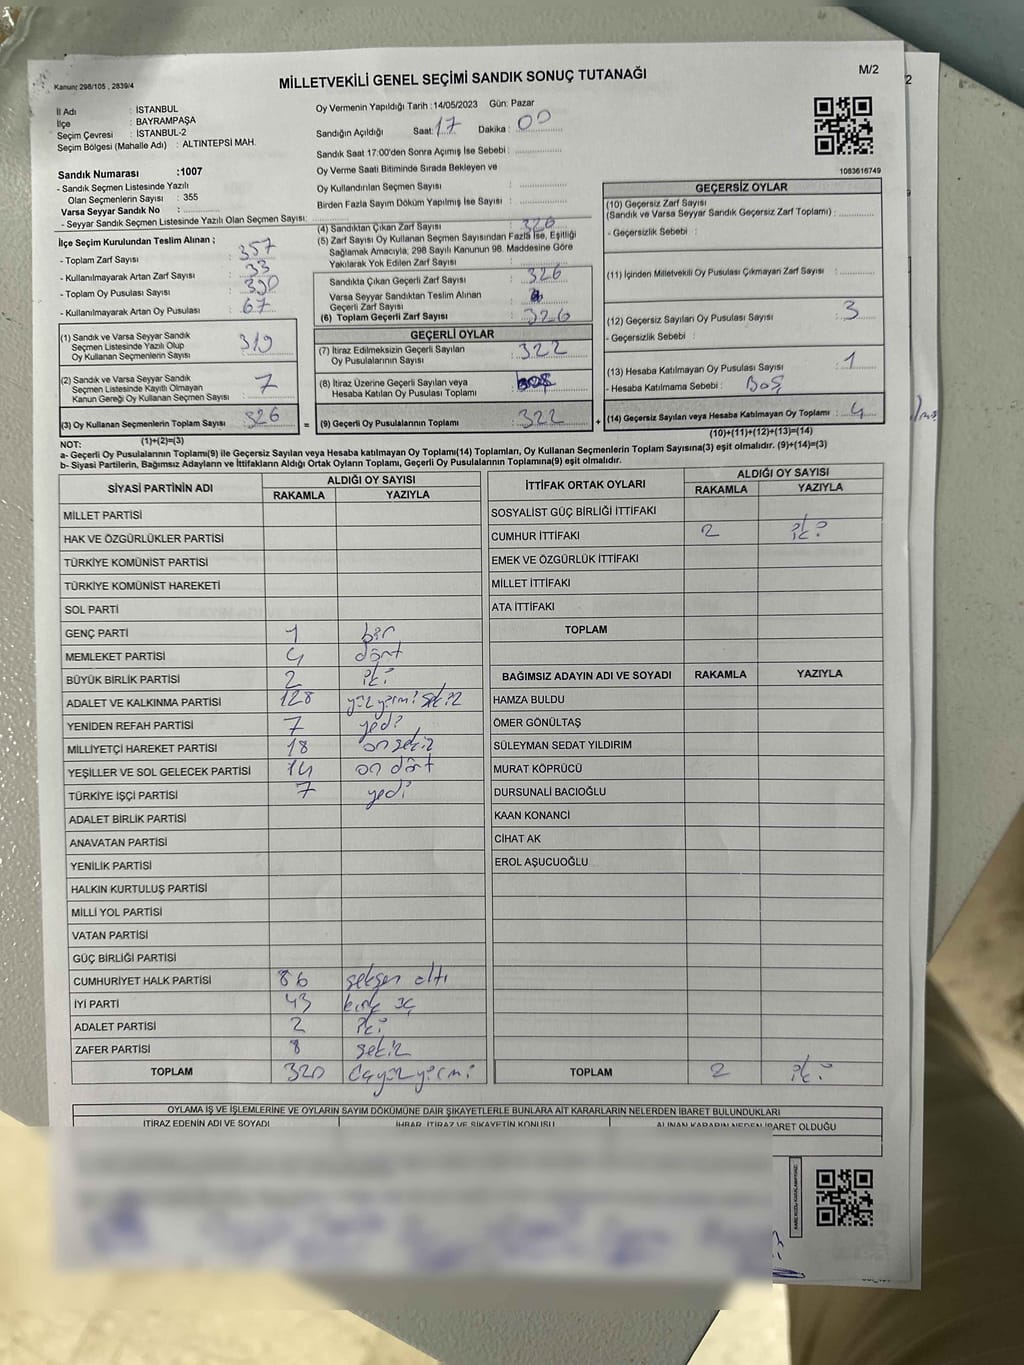 Kanun: 298/105 , 2839/4
MİLLETVEKİLİ GENEL SEÇİMİ SANDIK SONUÇ TUTANAĞI
M/2
2
İl Adı : İSTANBUL
İlçe : BAYRAMPAŞA
Seçim Çevresi : İSTANBUL-2
Seçim Bölgesi (Mahalle Adı) : ALTINTEPSİ MAH.
Sandık Numarası :1007
- Sandık Seçmen Listesinde Yazılı
Olan Seçmenlerin Sayısı : 355
Varsa Seyyar Sandık No :
- Seyyar Sandık Seçmen Listesinde Yazılı Olan Seçmen Sayısı:
Oy Vermenin Yapıldığı Tarih : 14/05/2023 Gün: Pazar
Sandığın Açıldığı Saat: 17 Dakika : 00
Sandık Saat 17:00'den Sonra Açımış İse Sebebi :
Oy Verme Saati Bitiminde Sırada Bekleyen ve
Oy Kullandırılan Seçmen Sayısı :
Birden Fazla Sayım Döküm Yapılmış İse Sayısı :
1083616749
İlçe Seçim Kurulundan Teslim Alınan ;
- Toplam Zarf Sayısı : 357
- Kullanılmayarak Artan Zarf Sayısı : 33
- Toplam Oy Pusulası Sayısı : 390
- Kullanılmayarak Artan Oy Pusulası : 67
(1) Sandık ve Varsa Seyyar Sandık
Seçmen Listesinde Yazılı Olup
Oy Kullanan Seçmenlerin Sayısı : 319
(2) Sandık ve Varsa Seyyar Sandık
Seçmen Listesinde Kayıtlı Olmayan
Kanun Gereği Oy Kullanan Seçmen Sayısı : 7
(3) Oy Kullanan Seçmenlerin Toplam Sayısı : 326
(4) Sandıktan Çıkan Zarf Sayısı : 326
(5) Zarf Sayısı Oy Kullanan Seçmen Sayısından Fazla İse, Eşitliği
Sağlamak Amacıyla, 298 Sayılı Kanunun 98. Maddesine Göre
Yakılarak Yok Edilen Zarf Sayısı :
Sandıkta Çıkan Geçerli Zarf Sayısı : 326
Varsa Seyyar Sandıktan Teslim Alınan
Geçerli Zarf Sayısı :
(6) Toplam Geçerli Zarf Sayısı : 326
GEÇERLİ OYLAR
(7) İtiraz Edilmeksizin Geçerli Sayılan
Oy Pusulalarının Sayısı : 322
(8) İtiraz Üzerine Geçerli Sayılan veya
Hesaba Katılan Oy Pusulası Toplamı : boş
= (9) Geçerli Oy Pusulalarının Toplamı : 322 +
GEÇERSİZ OYLAR
(10) Geçersiz Zarf Sayısı
(Sandık ve Varsa Seyyar Sandık Geçersiz Zarf Toplamı) :
- Geçersizlik Sebebi :
(11) İçinden Milletvekili Oy Pusulası Çıkmayan Zarf Sayısı :
(12) Geçersiz Sayılan Oy Pusulası Sayısı : 3
- Geçersizlik Sebebi :
(13) Hesaba Katılmayan Oy Pusulası Sayısı : 1
- Hesaba Katılmama Sebebi : Boş
(14) Geçersiz Sayılan veya Hesaba Katılmayan Oy Toplamı : 4
(10)+(11)+(12)+(13)=(14)
NOT: (1)+(2)=(3)
a- Geçerli Oy Pusulasının Toplamı(9) ile Geçersiz Sayılan veya Hesaba katılmayan Oy Toplamı(14) Toplamları, Oy Kullanan Seçmenlerin Toplam Sayısına(3) eşit olmalıdır. (9)+(14)=(3)
b- Siyasi Partilerin, Bağımsız Adayların ve İttifakların Aldığı Ortak Oyların Toplamı, Geçerli Oy Pusulalarının Toplamına(9) eşit olmalıdır.
SİYASİ PARTİNİN ADI ALDIĞI OY SAYISI
RAKAMLA YAZIYLA
MİLLET PARTİSİ
HAK VE ÖZGÜRLÜKLER PARTİSİ
TÜRKİYE KOMÜNİST PARTİSİ
TÜRKİYE KOMÜNİST HAREKETİ
SOL PARTİ
GENÇ PARTİ 1 bir
MEMLEKET PARTİSİ 4 dört
BÜYÜK BİRLİK PARTİSİ 2 iki
ADALET VE KALKINMA PARTİSİ 128 yüz yirmi sekiz
YENİDEN REFAH PARTİSİ 7 yedi
MİLLİYETÇİ HAREKET PARTİSİ 18 on sekiz
YEŞİLLER VE SOL GELECEK PARTİSİ 14 on dört
TÜRKİYE İŞÇİ PARTİSİ 7 yedi
ADALET BİRLİK PARTİSİ
ANAVATAN PARTİSİ
YENİLİK PARTİSİ
HALKIN KURTULUŞ PARTİSİ
MİLLİ YOL PARTİSİ
VATAN PARTİSİ
GÜÇ BİRLİĞİ PARTİSİ
CUMHURİYET HALK PARTİSİ 86 seksen altı
İYİ PARTİ 43 kırk üç
ADALET PARTİSİ 2 iki
ZAFER PARTİSİ 8 sekiz
TOPLAM 320 üçyüz yirmi
İTTİFAK ORTAK OYLARI ALDIĞI OY SAYISI
RAKAMLA YAZIYLA
SOSYALİST GÜÇ BİRLİĞİ İTTİFAKI
CUMHUR İTTİFAKI 2 iki
EMEK VE ÖZGÜRLÜK İTTİFAKI
MİLLET İTTİFAKI
ATA İTTİFAKI
TOPLAM
BAĞIMSIZ ADAYIN ADI VE SOYADI RAKAMLA YAZIYLA
HAMZA BULDU
ÖMER GÖNÜLTAŞ
SÜLEYMAN SEDAT YILDIRIM
MURAT KÖPRÜCÜ
DURSUNALİ BACIOĞLU
KAAN KONANCİ
CİHAT AK
EROL AŞUCUOĞLU
TOPLAM 2 iki
OYLAMA İŞ VE İŞLEMLERİNE VE OYLARIN SAYIM DÖKÜMÜNE DAİR ŞİKAYETLERLE BUNLARA AİT KARARLARIN NELERDEN İBARET BULUNDUKLARI
İTİRAZ EDENİN ADI VE SOYADI İHBAR, İTİRAZ VE ŞİKAYETİN KONUSU ALINAN KARARIN NEDEN İBARET OLDUĞU